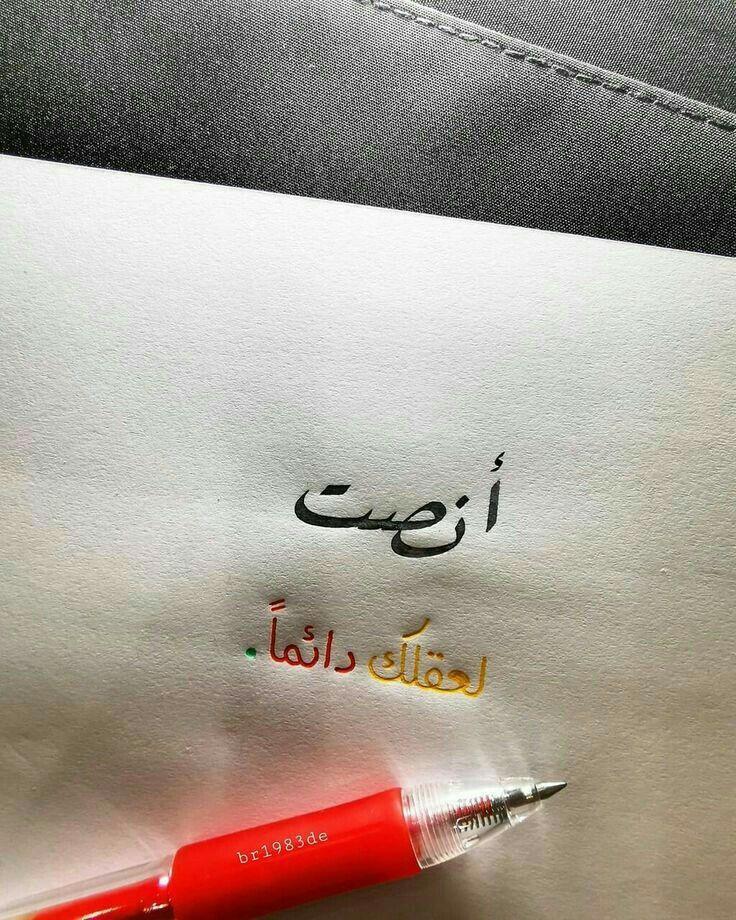 أنصت
لعقلك دائماً.
br1983de